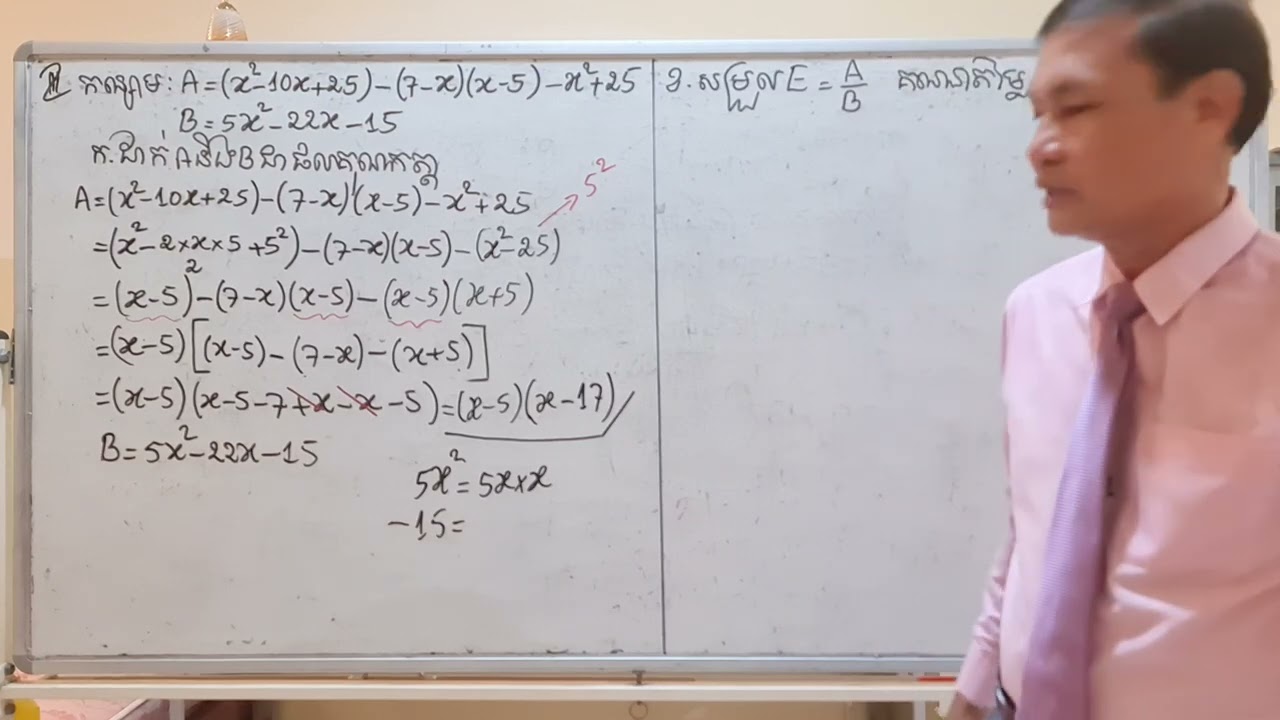 III កន្សោម: A = (x²-10x+25) - (7-x)(x-5) - x²+25
B = 5x² - 22x - 15
ក. ដាក់ A និង B ជាផលគុណកត្តា
A = (x²-10x+25) - (7-x)(x-5) - x²+25
= (x²-2×x×5+5²) - (7-x)(x-5) - (x²-25) 5²
= (x-5)² - (7-x)(x-5) - (x-5)(x+5)
= (x-5)[(x-5) - (7-x) - (x+5)]
= (x-5)(x-5-7+x-x-5) = (x-5)(x-17)
B = 5x² - 22x - 15
5x² = 5x×x
-15 =
ខ. សម្រួល E = A/B គណនាតម្លៃ